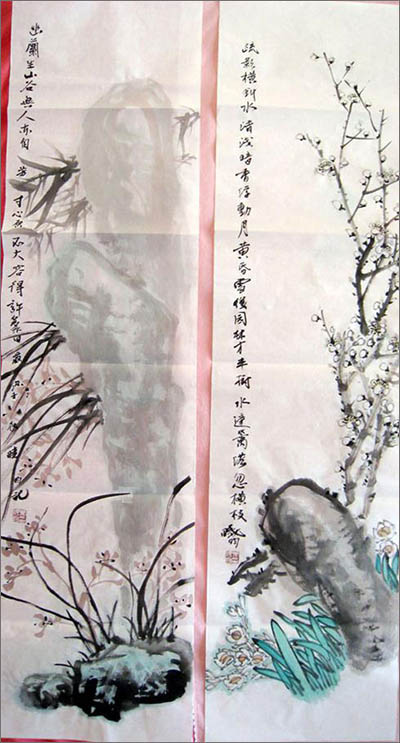 疎影橫斜水清浅暗香浮動月黃昏雪後園林才半樹水邊籬落忽橫枝
幽蘭生山谷無人亦自芳寸心原不大容得許多香